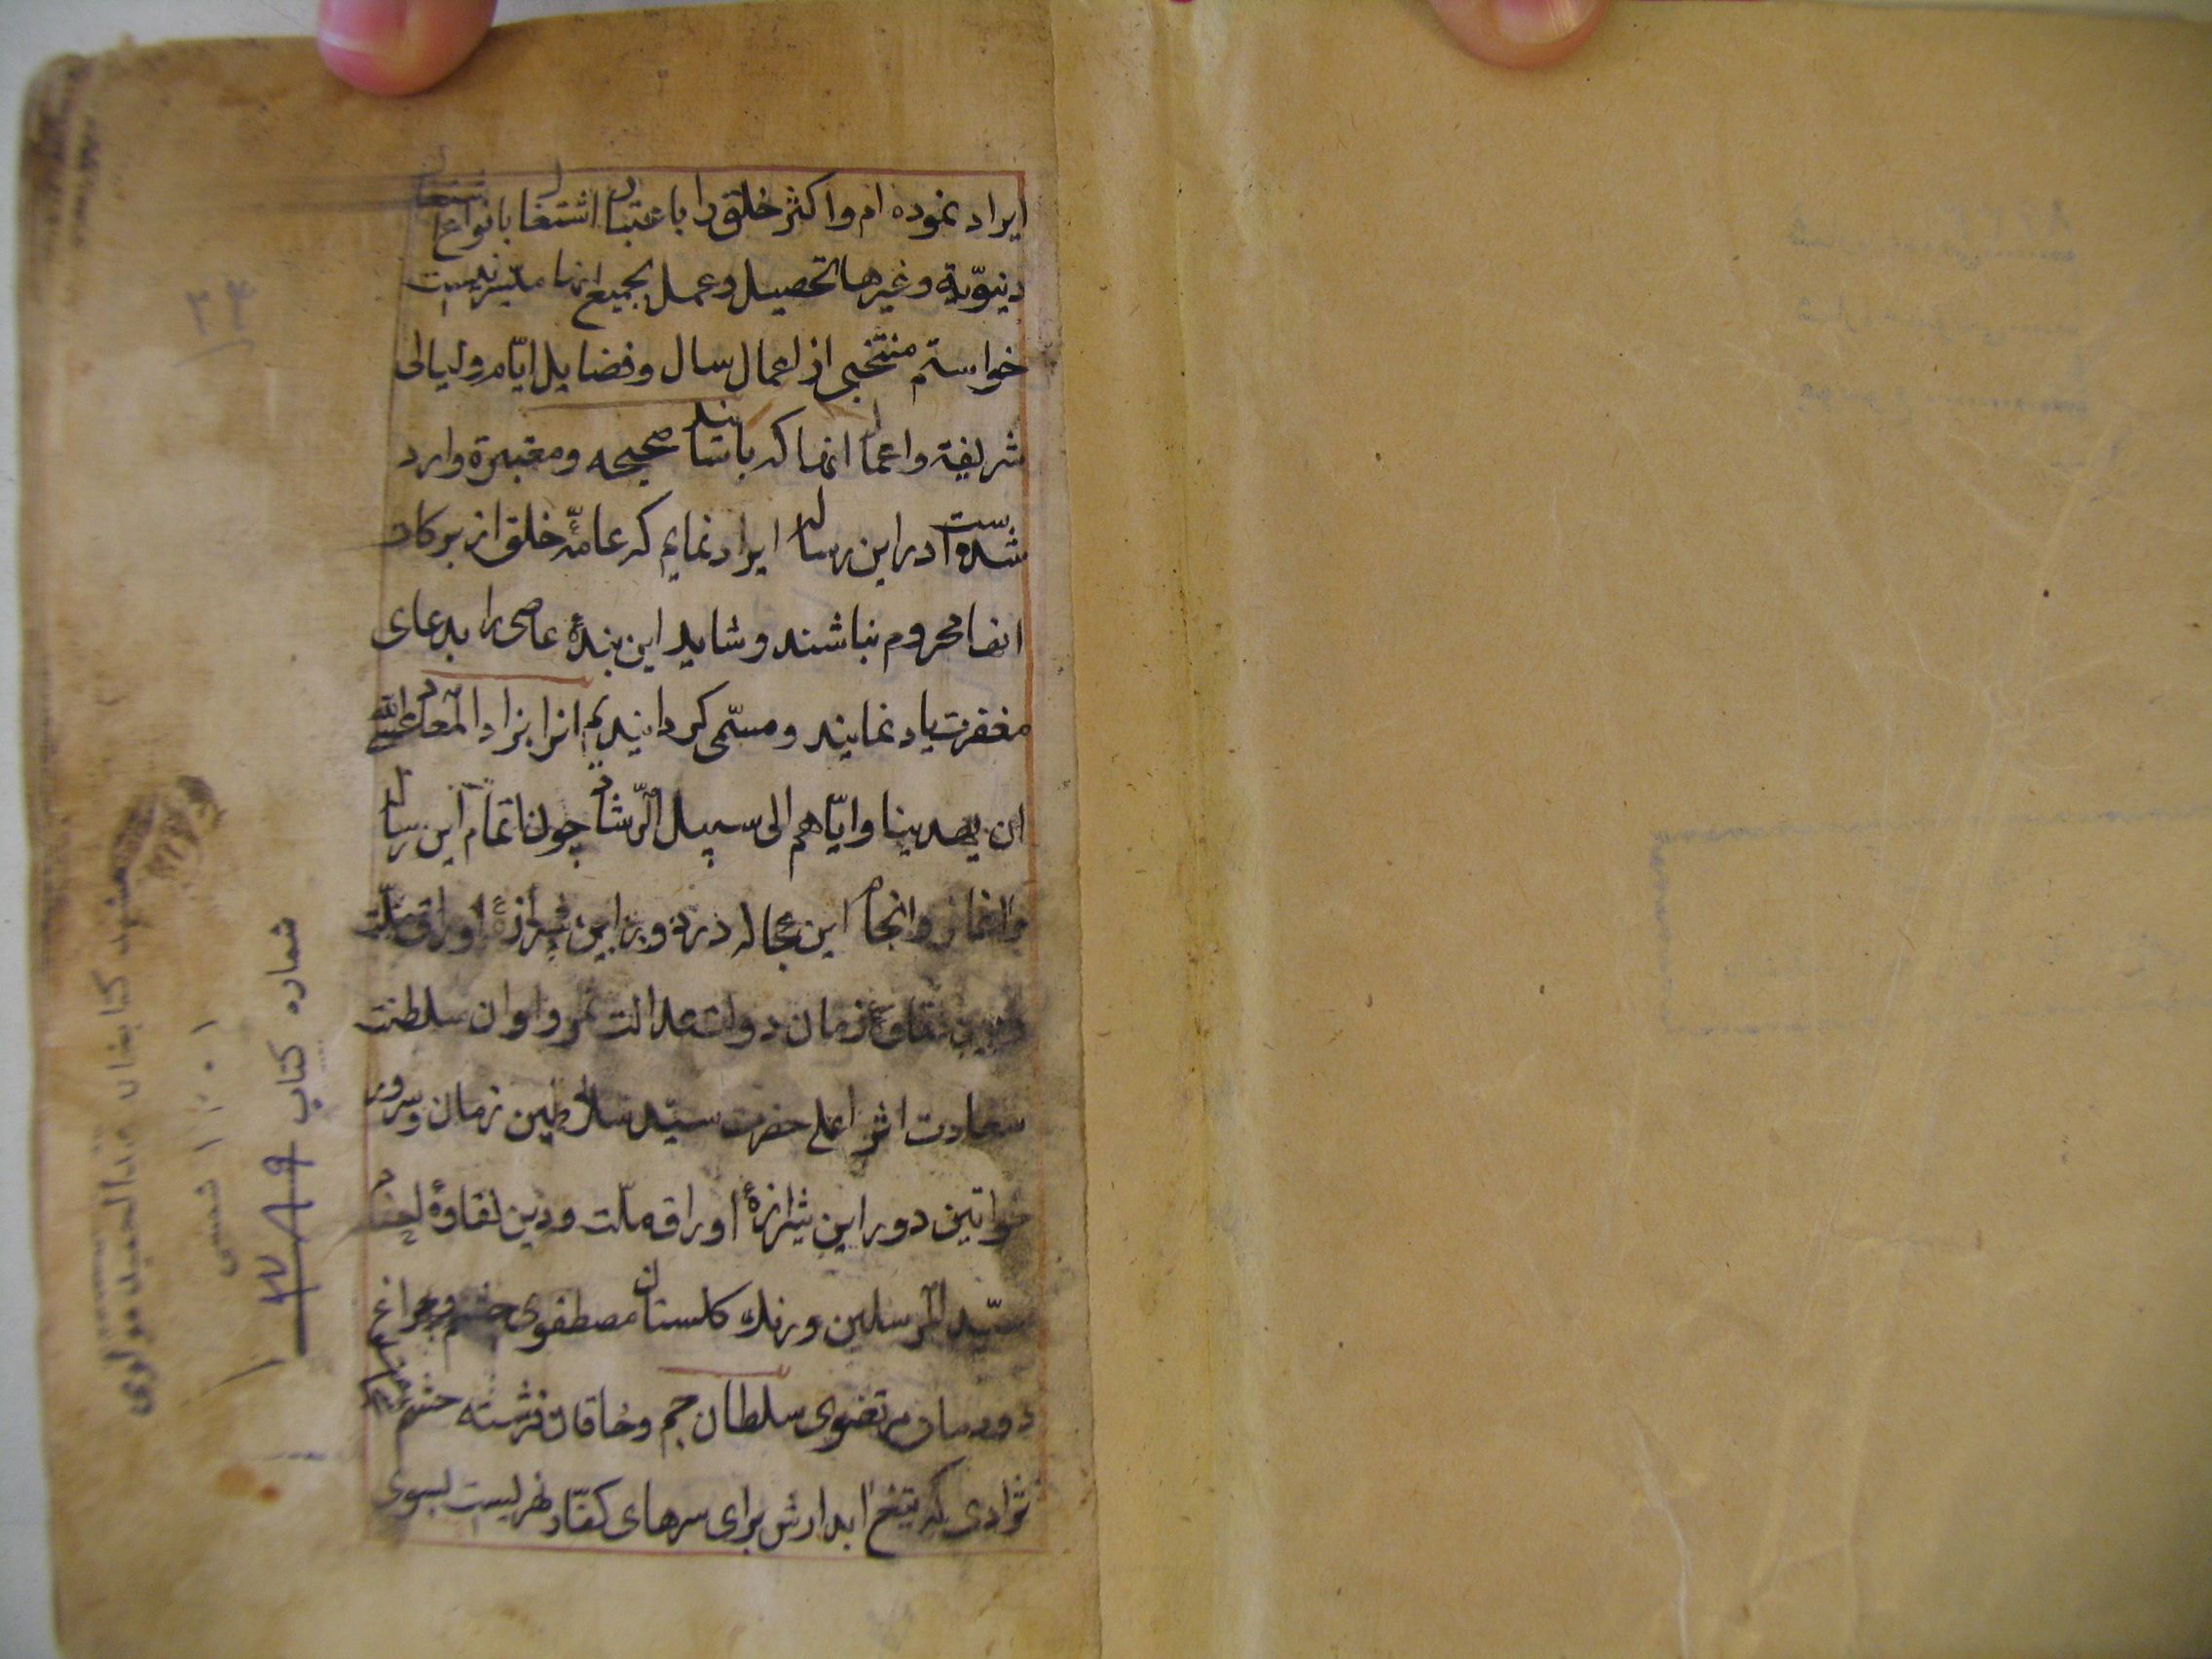 ایراد نموده ام و اکثر خلق را باعتبار اشتغال بانواع اشغال
دنیویّة و غیرها تحصیل و عمل بجمیع انها میّسر نیست
خواستم منتخبی از اعمال سال و فضایل ایّام ولیالی
شریفة و اعمال انها که باسانید صحیحه و معتبرة وارد
شده است در این رساله ایراد نمایم که عامّۀ خلق از برکات
انها محروم نباشند و شاید این بندۀ عاصی را بدعای
مغفرت یاد نمایند و مسمّی کردانیدیم انرا بزاد المعاد
ان یهدینا و ایّاهم الی سبیل الرّشاد چون اتمام این رساله
وانجام این عجاله در اوراق
زمان دولت عدالت ثمر و اوان سلطنت
سعادت اثر اعلی حضرت سیّد سلاطین زمان و سرور
خواتین دوراین شیرازۀ اوراق ملّت و دین نقاوۀ احفاد
سیّد المرسلین و رنك کلستان مصطفوی چشم و چراغ
دودمان مرتضوی سلطان جم و خاقان فرشته حشم
نژادی که تیغ ابدارش برای سرهای کفّار نهریست بسوی
۲۴
شماره کتاب
۱۱۰۱ شمسی
عبدالحمید مولوی